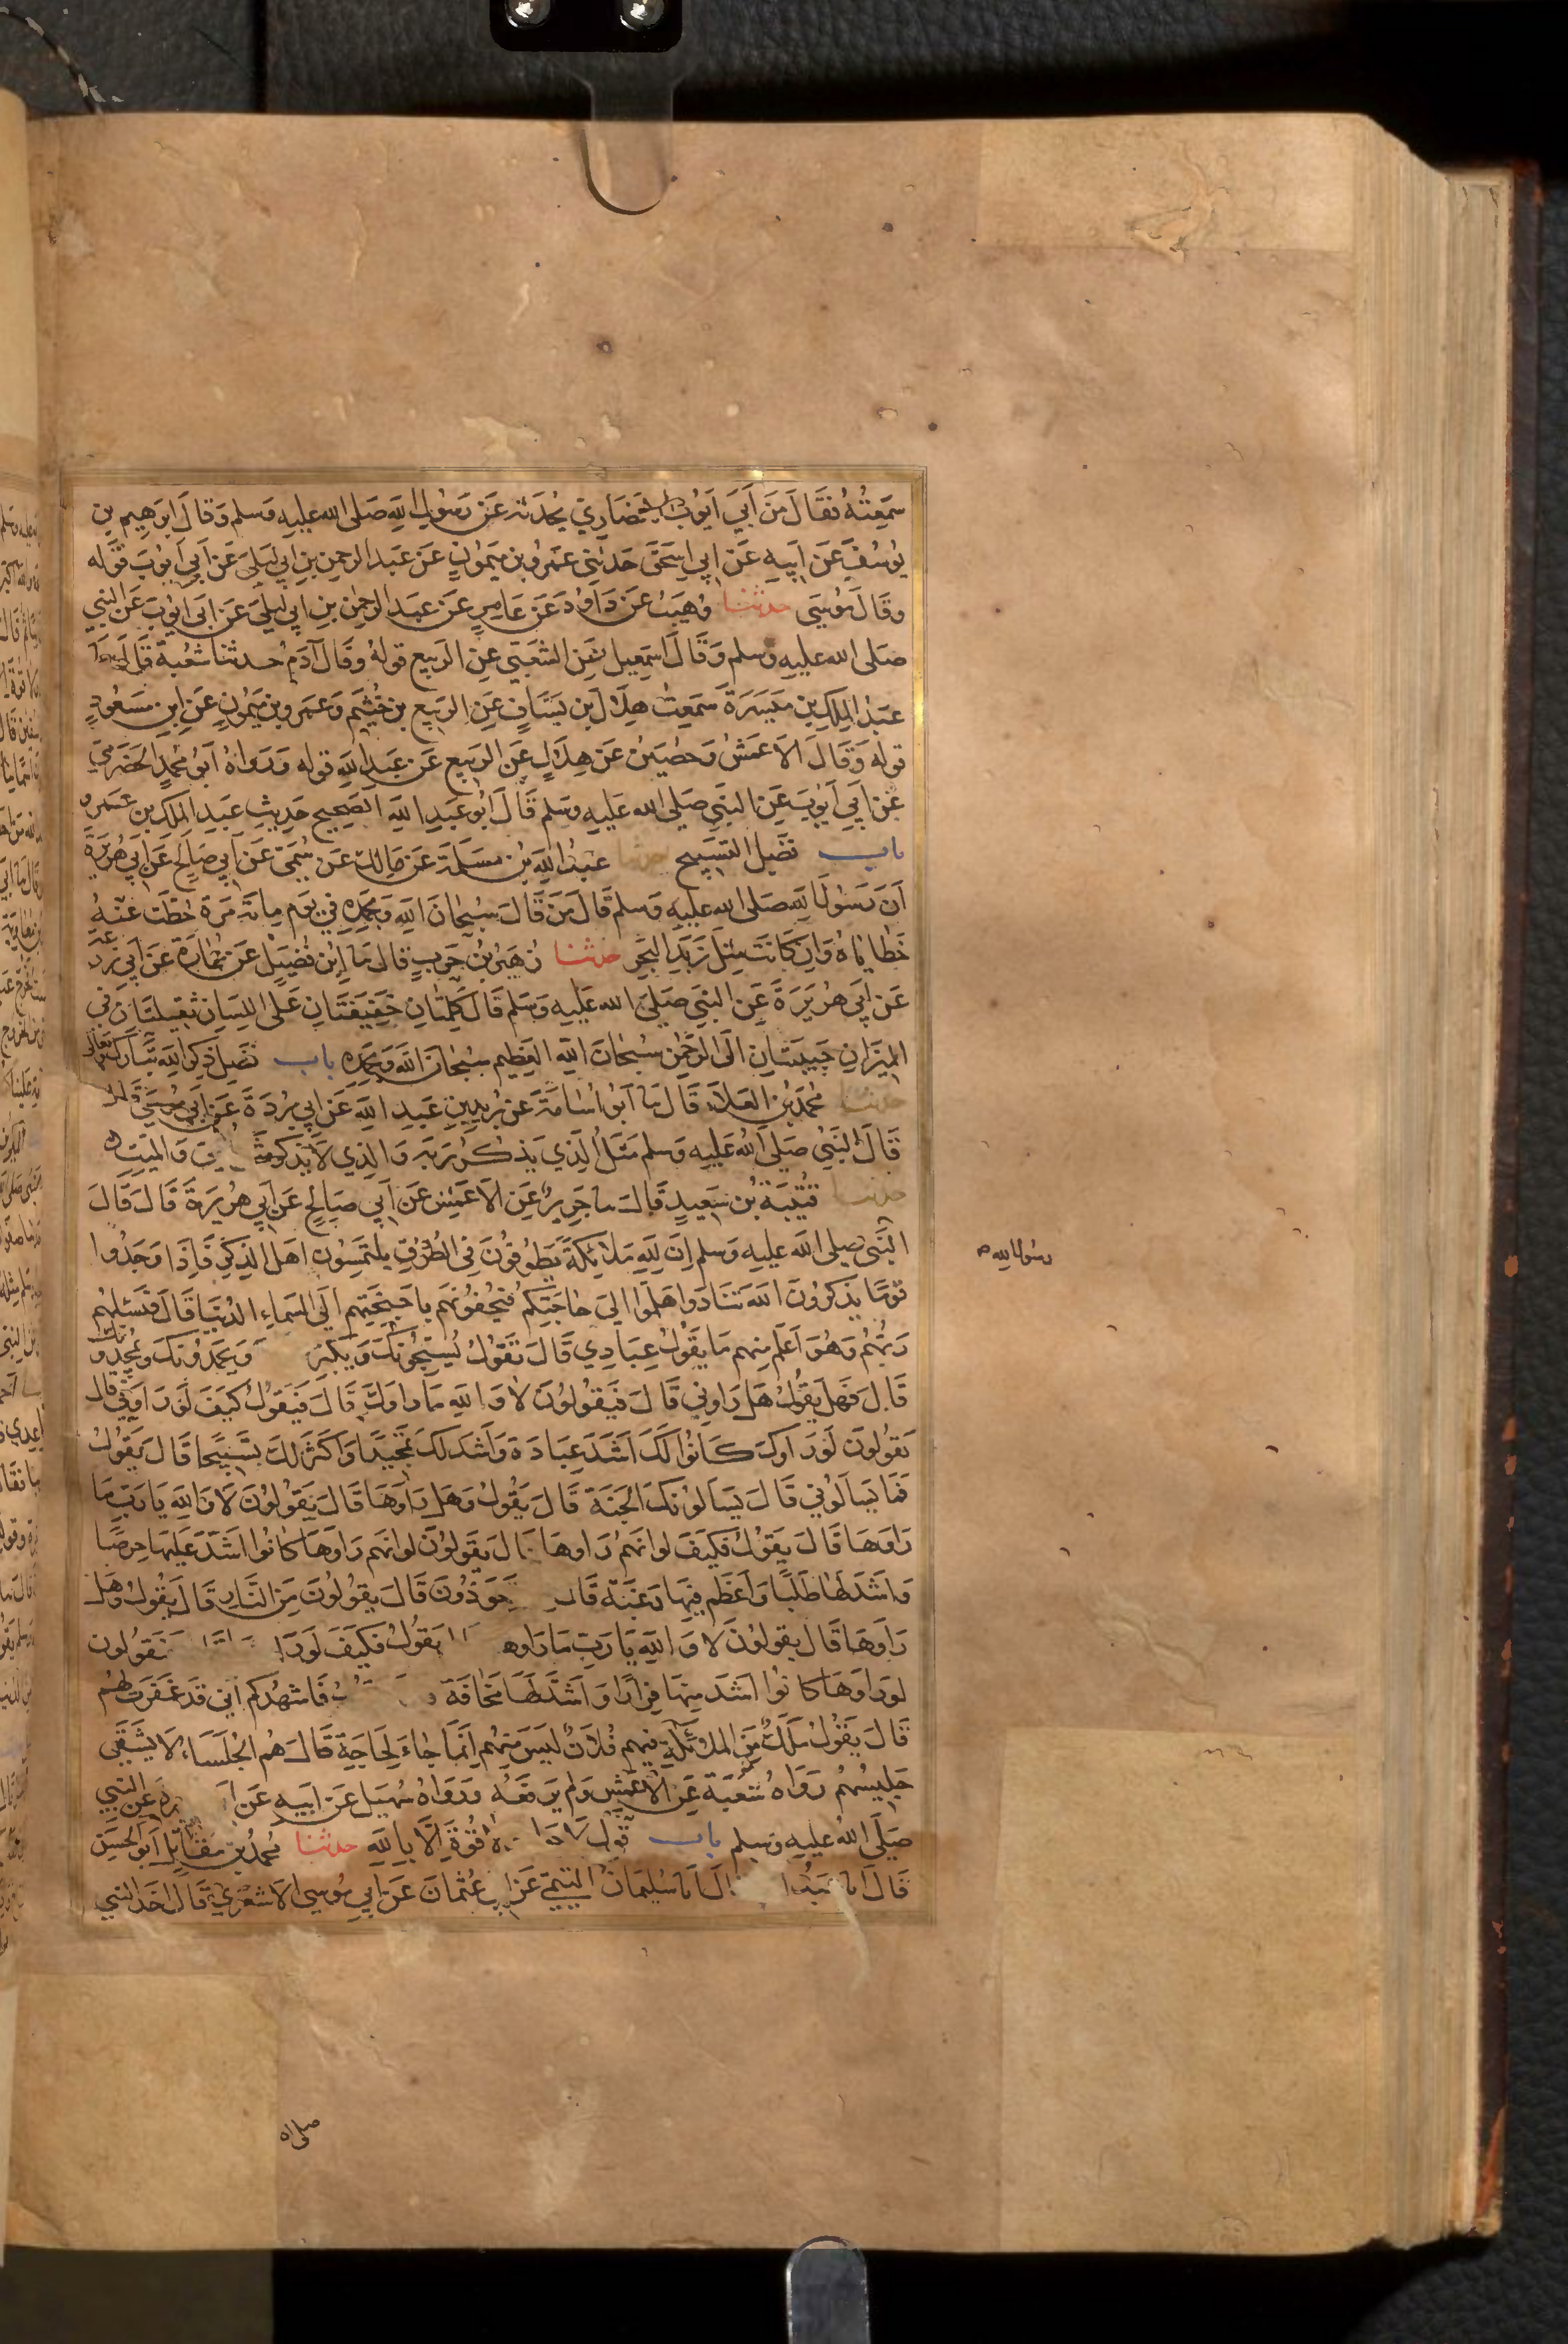 سمعته فقال من ابي ايوب الانصاري يحدثه عن رسول الله صلى الله عليه وسلم وقال ابرهيم بن
يوسف عن ابيه عن ابي اسحق حدثني عمرو بن ميمون عن عبد الرحمن بن ابي ليلى عن ابي ايوب قوله
وقال موسى حدثنا وهيب عن داود عن عامر عن عبد الرحمن بن ابي ليلى عن ابي ايوب عن النبي
صلى الله عليه وسلم وقال اسمعيل عن الشعبي عن الربيع قوله وقال آدم حدثنا شعبة قال
عبد الملك بن ميسرة سمعت هلال بن يساف عن الربيع بن خثيم وعمرو بن ميمون عن ابن مسعود
قوله وقال الاعمش وحصين عن هلال عن الربيع عن عبد الله قوله ورواه ابو محمد الحضرمي
عن ابي ايوب عن النبي صلى الله عليه وسلم قال ابو عبد الله الصحيح حديث عبد الملك بن عمرو
باب فضل التسبيح حدثنا عبد الله بن مسلمة عن مالك عن سمي عن ابي صالح عن ابي هريرة
ان رسول الله صلى الله عليه وسلم قال من قال سبحان الله وبحمده في يوم مائة مرة حطت عنه
خطاياه وان كانت مثل زبد البحر حدثنا زهير بن حرب قال نا ابن فضيل عن عمارة عن ابي زرعة
عن ابي هريرة عن النبي صلى الله عليه وسلم قال كلمتان خفيفتان على اللسان ثقيلتان في
الميزان حبيبتان الى الرحمن سبحان الله العظيم سبحان الله وبحمده باب فضل ذكر الله تبارك وتعالى
حدثنا محمد بن العلاء قال نا ابو اسامة عن بريد بن عبد الله عن ابي بردة عن ابي موسى قال
قال النبي صلى الله عليه وسلم مثل الذي يذكر ربه والذي لا يذكر والميت
حدثنا قتيبة بن سعيد قال نا جرير عن الاعمش عن ابي صالح عن ابي هريرة قال قال
النبي صلى الله عليه وسلم ان لله ملائكة يطوفون في الطرق يلتمسون اهل الذكر فاذا وجدوا
رسول الله ص
قوما يذكرون الله تنادوا هلموا الى حاجتكم فيحفونهم باجنحتهم الى السماء الدنيا قال فيسئلهم
ربهم وهو اعلم منهم ما يقول عبادي قال تقول يسبحونك ويحمدونك ويمجدونك
قال فهل يقول هل راوني قال فيقولون لا والله ما راوك قال فيقول كيف لو راوني قال
يقولون لو راوك كانوا لك اشد عبادة واشد لك تمجيدا واكثر لك تسبيحا قال يقول
فما يسالوني قال يسالونك الجنة قال يقول وهل راوها قال يقولون لا والله يا رب ما
راوها قال يقول فكيف لو انهم راوها قال يقولون لو انهم راوها كانوا اشد عليها حرصا
واشد لها طلبا واعظم فيها رغبة قال يتعوذون قال يقولون من النار قال يقول وهل
راوها قال يقولون لا والله يا رب ما راوها يقول فكيف لو يقولون
لو راوها كانوا اشد منها فرارا واشد لها مخافة فاشهدكم اني قد غفرت لهم
قال يقول ملك من الملائكة فيهم فلان ليس منهم انما جاء لحاجة قال هم الجلساء لا يشقى
جليسهم رواه شعبة عن الاعمش ولم يرفعه ورواه سهيل عن ابيه عن عن النبي
صلى الله عليه وسلم باب قول لا قوة الا بالله حدثنا محمد بن مقاتل ابو الحسن
قال انا قال انا سليمان التيمي عن ابي عثمان عن ابي موسى الاشعري قال اخذ النبي
صلى الله